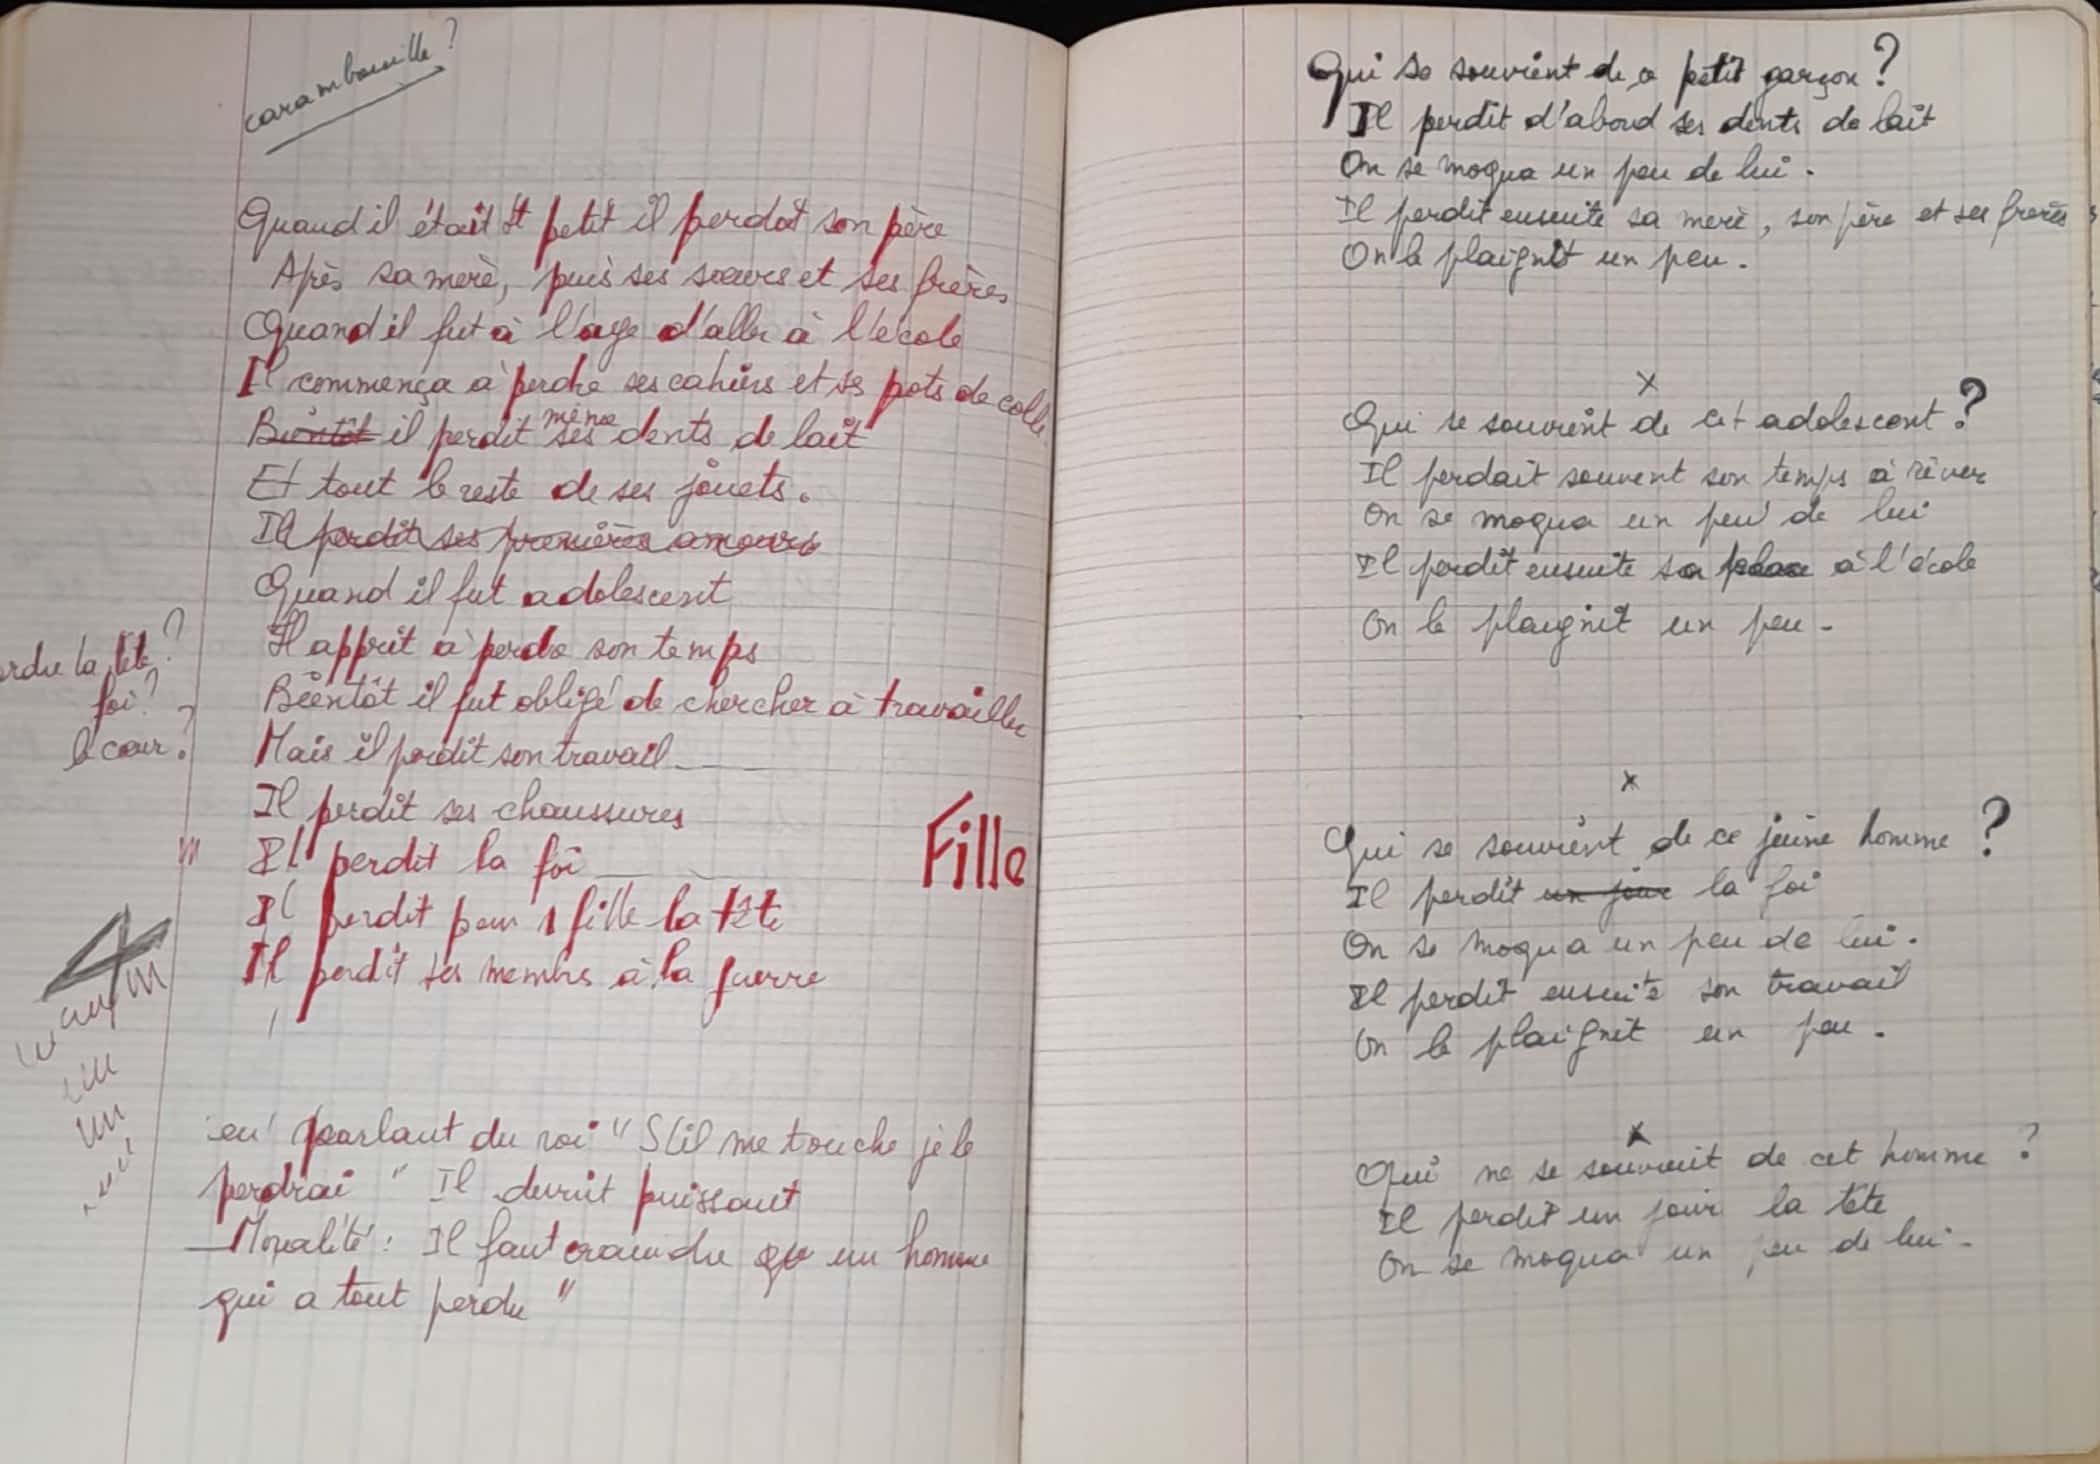 carambouille ?
Quand il était petit il perdit son père
Après sa mère, puis ses sœurs et ses frères
Quand il fut à l'age d'aller à l'école
Il commença à perdre ses cahiers et ses pots de colle
Bientôt il perdit même ses dents de lait
Et tout le reste de ses jouets.
Il perdit ses premières amours
Quand il fut adolescent
Il apprit à perdre son temps
la tête ?
foi ?
le cœur ?
Bientôt il fut obligé de chercher à travailler
Mais il perdit son travail
Il perdit ses chaussures
Il perdit la foi
Fille
Il perdit pour 1 fille la tête
Il perdit ses membres à la guerre
en parlant du roi " S'il me touche je le
perdrai " Il devint puissant
Moralité : Il faut craindre un homme
qui a tout perdu "
Qui se souvient de ce petit garçon ?
Il perdit d'abord ses dents de lait
On se moqua un peu de lui.
Il perdit ensuite sa mère, son père et ses frères
On le plaignit un peu.
x
Qui se souvient de cet adolescent ?
Il perdait souvent son temps à rêver
On se moqua un peu de lui
Il perdit ensuite sa place à l'école
On le plaignit un peu.
x
Qui se souvient de ce jeune homme ?
Il perdit un jour la foi
On se moqua un peu de lui.
Il perdit ensuite son travail
On le plaignit un peu.
x
Qui ne se souvient de cet homme ?
Il perdit un jour la tête
On se moqua un peu de lui.